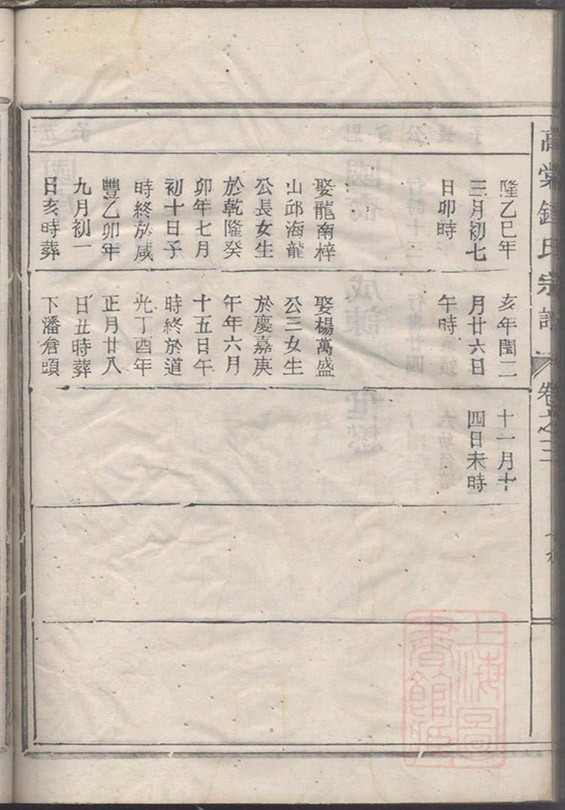 高
鍾氏宗譜
卷之三
隆乙巳年
三月初七
日卯時
娶龍南梓
山邱海龍
公長女生
於乾隆癸
卯年七月
初十日子
時終於咸
豐乙卯年
九月初一
日亥時葬
亥年閏二
月廿六日
午時
娶楊萬盛
公三女生
於慶嘉庚
午年六月
十五日午
時終於道
光丁酉年
正月廿八
日丑時葬
下潘倉頭
十一月十
四日未時
上海圖
書館